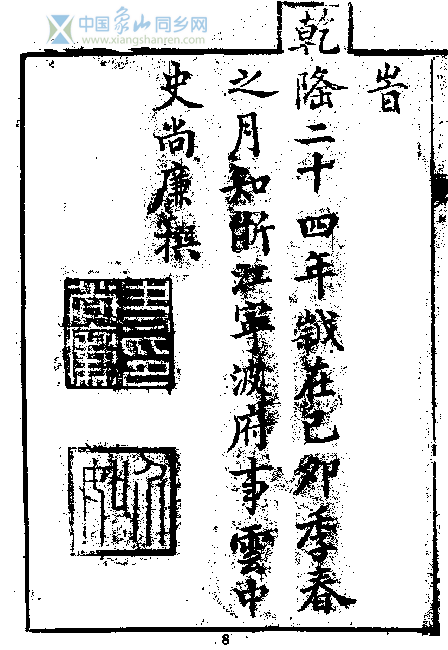 中国象山同乡网
www.xiangshanren.com
旹
乾隆二十四年歲在己卯季春
之月知浙江寧波府事雲中
史尚廉撰
8